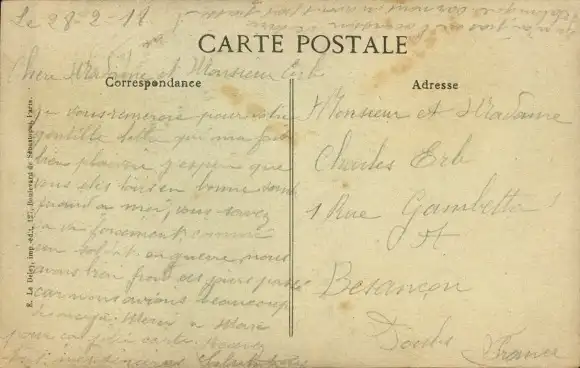 Le 28-2-18.
CARTE POSTALE
Correspondance
Adresse
Chers Madame et Monsieur Erb
je vous remercie pour votre
gentille lettre qui m'a fait
bien plaisir j'espère que
vous êtes tous en bonne santé
quand a moi, vous savez
ça va forcément, comme
un soldat en guerre, nous
avons bien froid ces jours passé
car nous avions beaucoup
de neige Merci a
pour sa jolie carte. Recevez
Monsieur et Madame
Charles Erb
1 Rue Gambetta 1
A
Besançon
Doubs
France
E. Le Deley, imp.-édit., 127, Boulevard de Sébastopol, Paris.